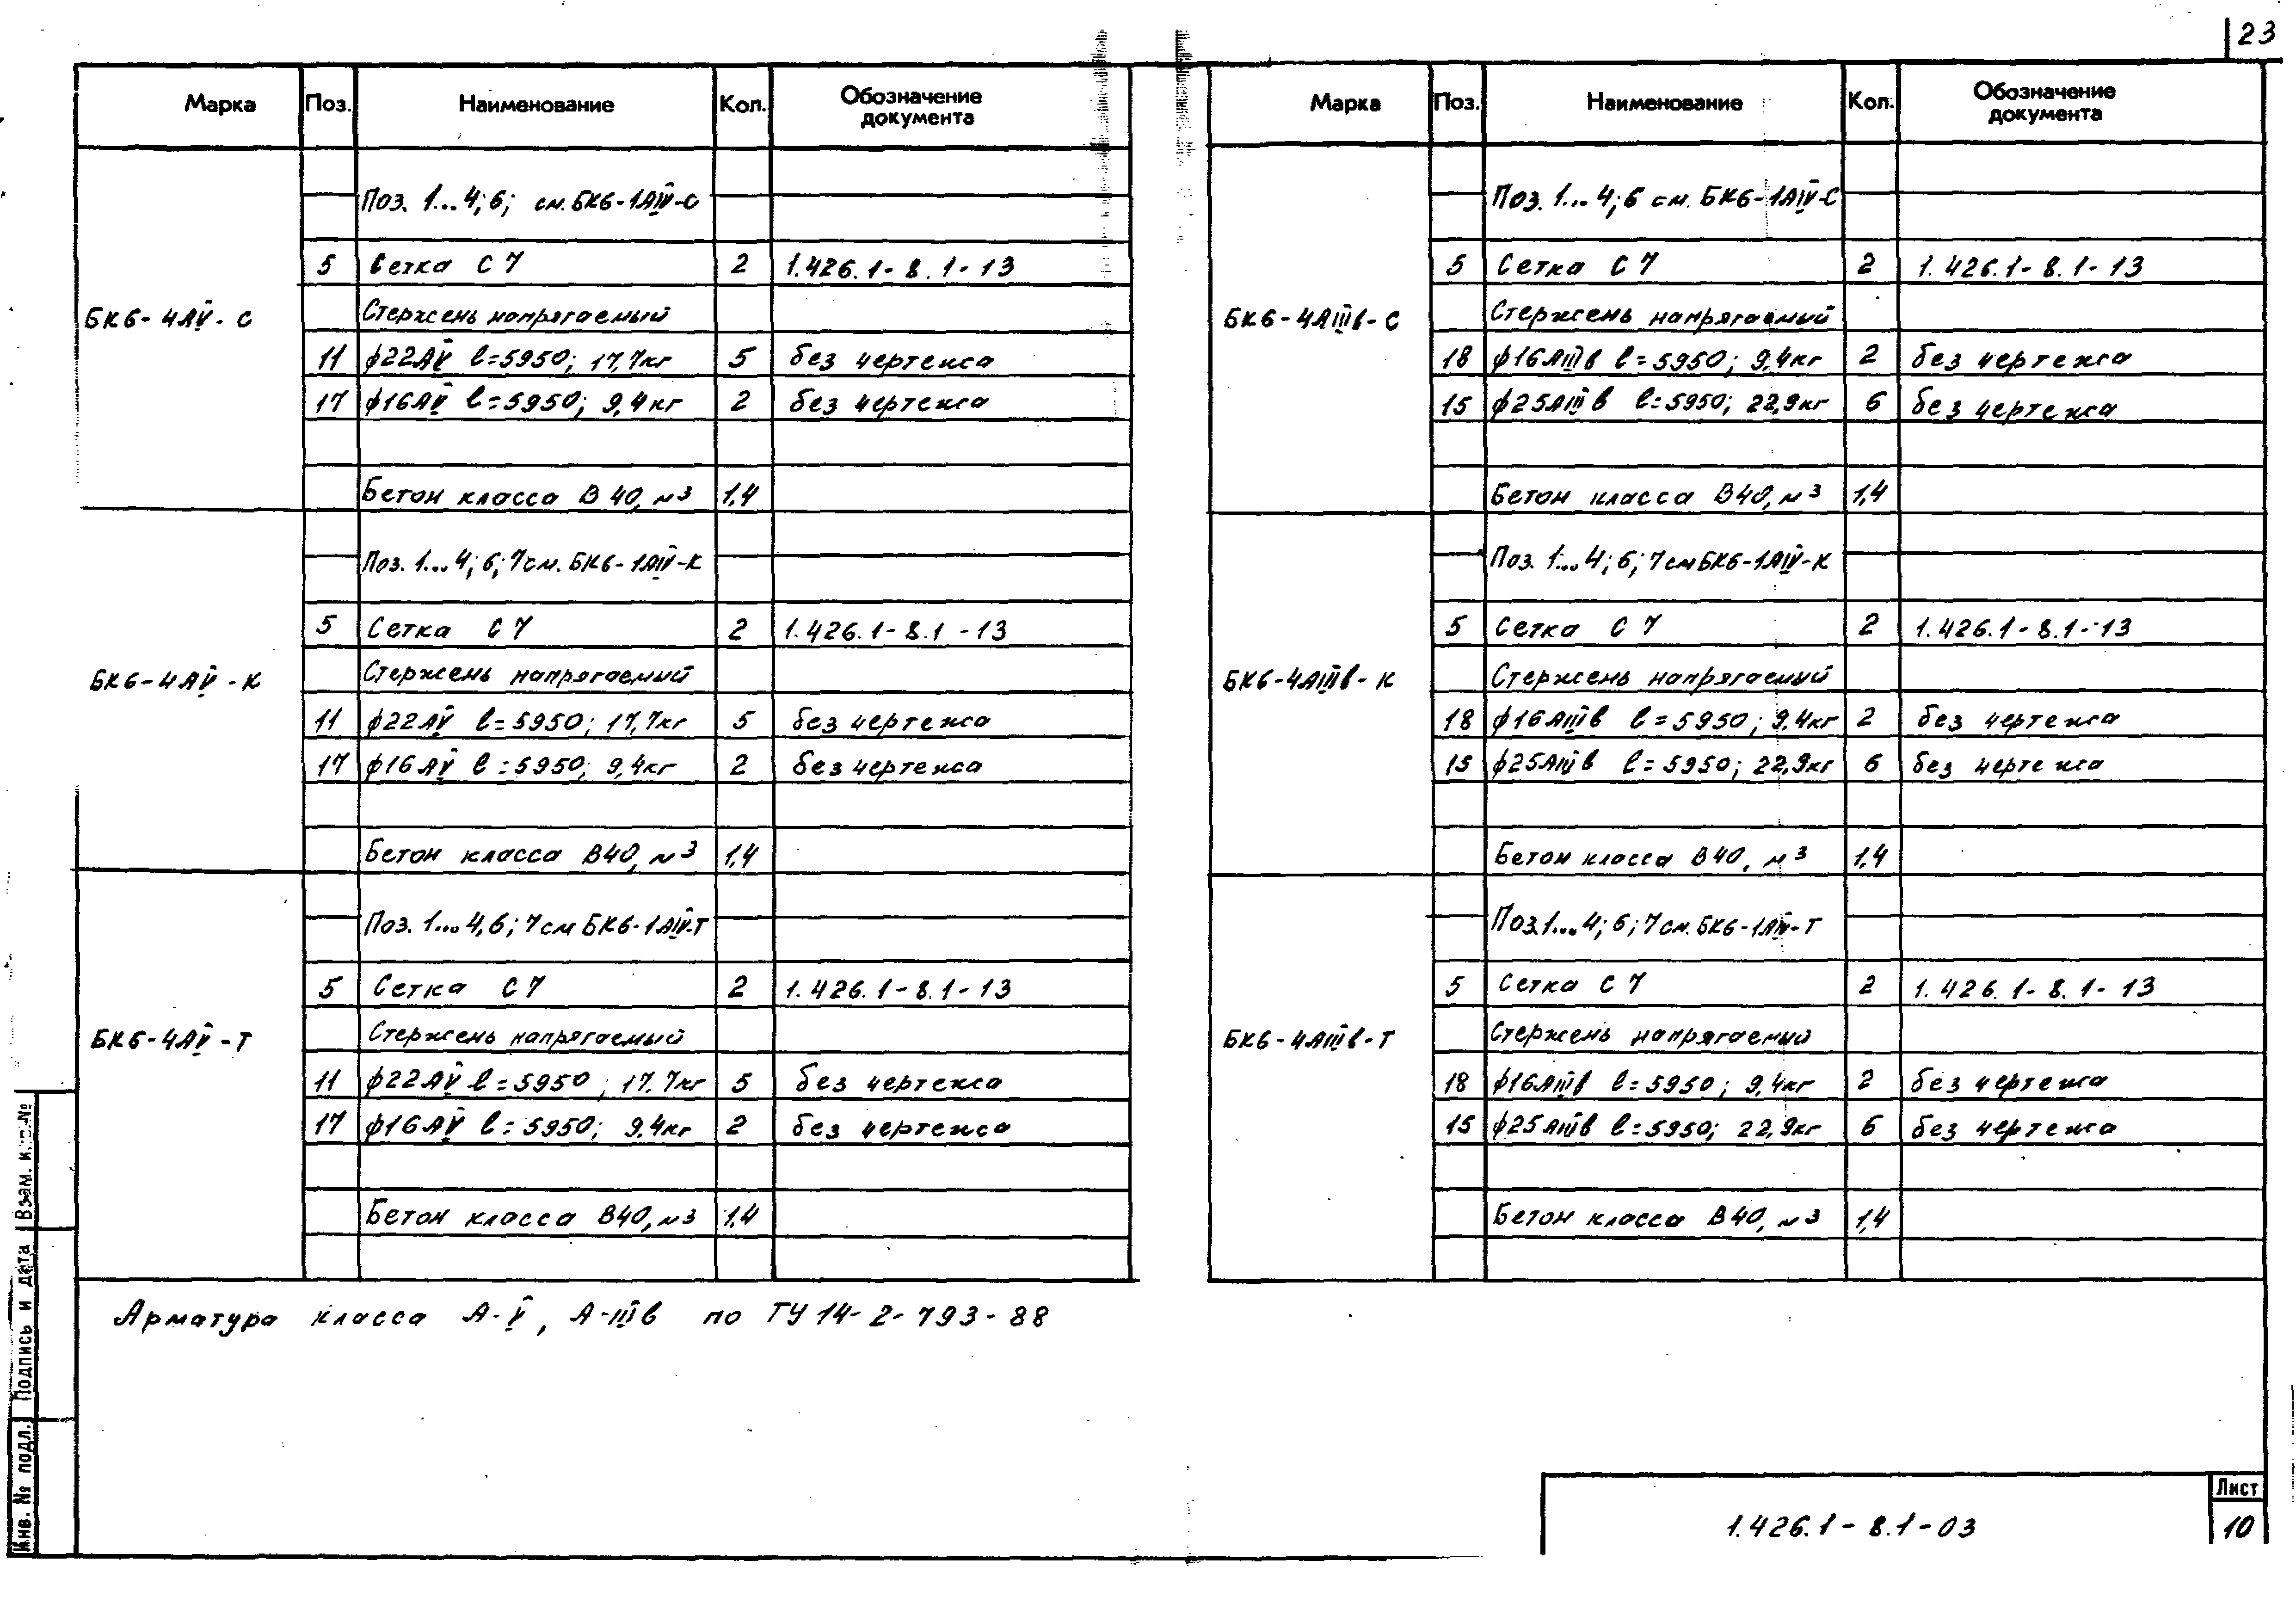 23
Марка Поз. Наименование Кол. Обозначение документа
БК6-4АV-С
Поз. 1...4; 6; см. БК6-1АIV-С
5 Сетка С7 2 1.426.1-8.1-13
Стержень напрягаемый
11 ф22АV l=5950; 17,7кг 5 без чертежа
17 ф16АV l=5950; 9,4кг 2 без чертежа
Бетон класса В40, м3 1,4
БК6-4АV-К
Поз. 1...4; 6; 7 см. БК6-1АIV-К
5 Сетка С7 2 1.426.1-8.1-13
Стержень напрягаемый
11 ф22АV l=5950; 17,7кг 5 без чертежа
17 ф16АV l=5950; 9,4кг 2 без чертежа
Бетон класса В40, м3 1,4
БК6-4АV-Т
Поз. 1...4, 6; 7 см БК6-1АIV-Т
5 Сетка С7 2 1.426.1-8.1-13
Стержень напрягаемый
11 ф22АV l=5950; 17.7кг 5 без чертежа
17 ф16АV l=5950; 9.4кг 2 без чертежа
Бетон класса В40, м3 1,4
Арматура класса А-V, А-IIIв по ТУ 14-2-793-88
Марка Поз. Наименование Кол. Обозначение документа
БК6-4АIIIв-С
Поз. 1...4; 6 см. БК6-1АIV-С
5 Сетка С7 2 1.426.1-8.1-13
Стержень напрягаемый
18 ф16АIIIв l=5950; 9,4кг 2 без чертежа
15 ф25АIIIв l=5950; 22,9кг 6 без чертежа
Бетон класса В40, м3 1,4
БК6-4АIIIв-К
Поз. 1...4; 6; 7 см БК6-1АIV-К
5 Сетка С7 2 1.426.1-8.1-13
Стержень напрягаемый
18 ф16АIIIв l=5950; 9,4кг 2 без чертежа
15 ф25АIIIв l=5950; 22,9кг 6 без чертежа
Бетон класса В40, м3 1,4
БК6-4АIIIв-Т
Поз.1...4; 6; 7 см. БК6-1АIV-Т
5 Сетка С7 2 1.426.1-8.1-13
Стержень напрягаемый
18 ф16АIIIв l=5950; 9,4кг 2 без чертежа
15 ф25АIIIв l=5950; 22,9кг 6 без чертежа
Бетон класса В40, м3 1,4
Инв. № подл. Подпись и дата Взам. инв. №
1.426.1-8.1-03
Лист
10